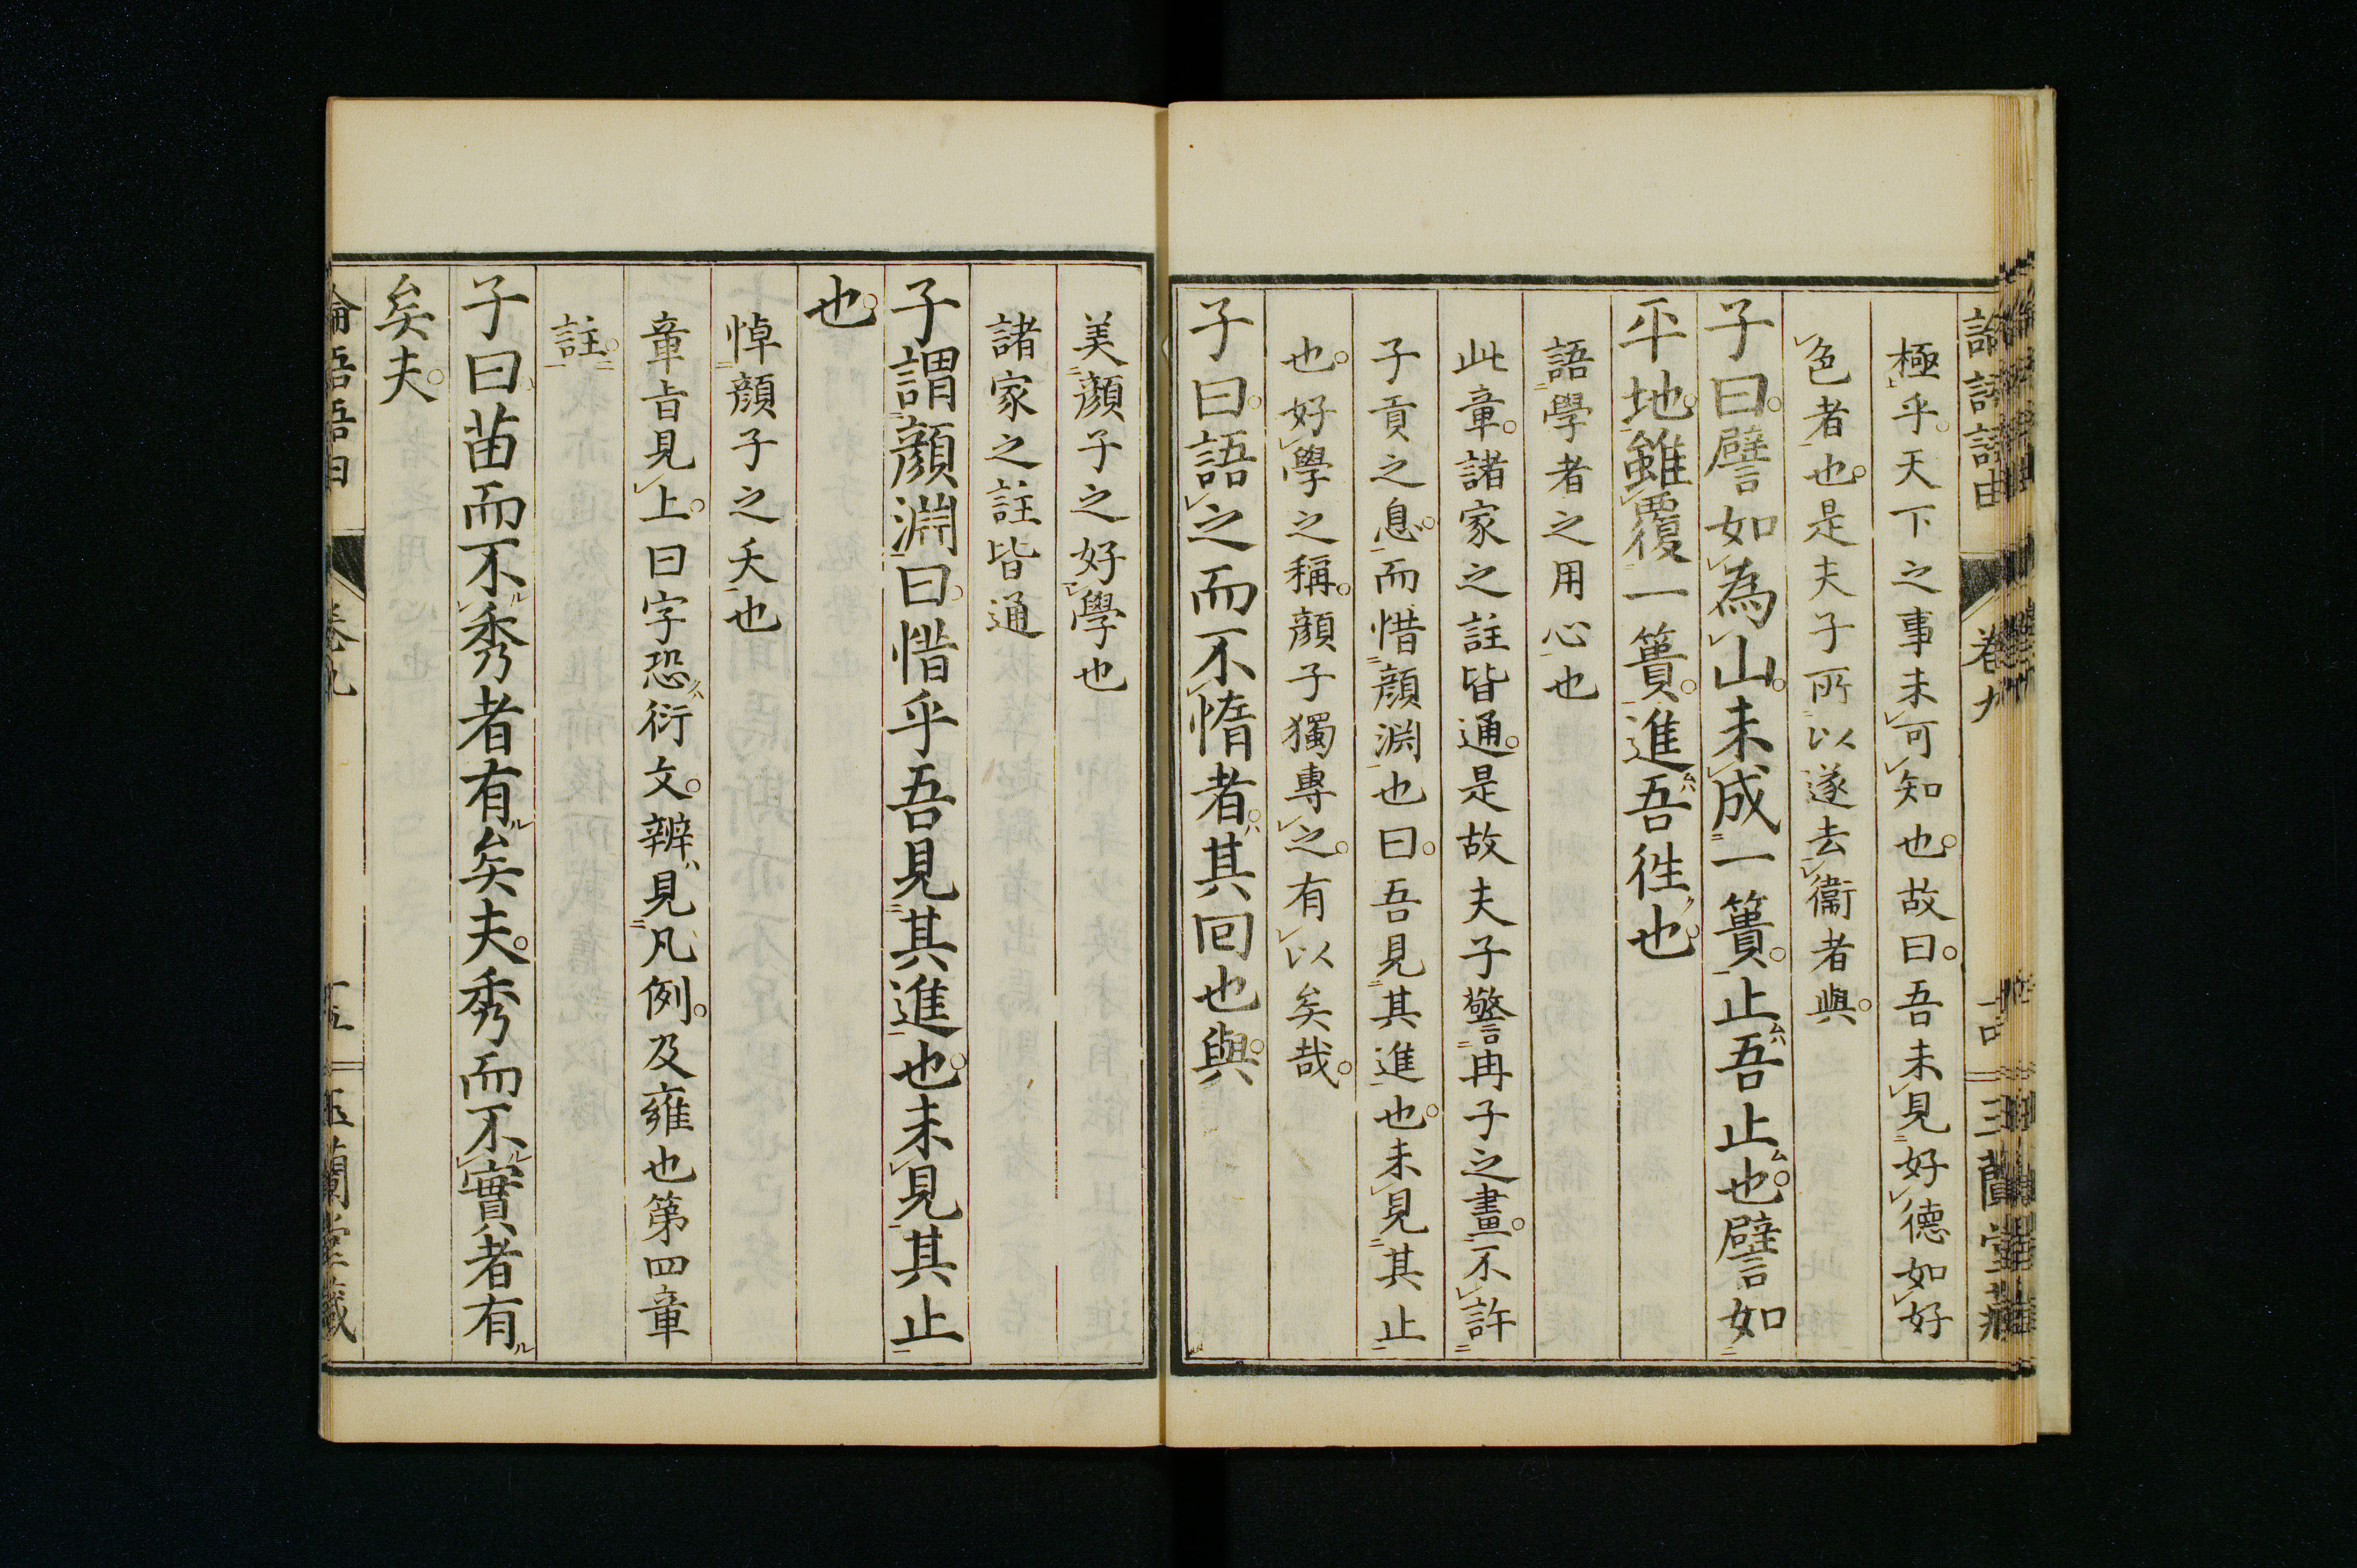 論語語由 卷九 十四 玉蘭堂藏
極乎天下之事未可知也故曰吾未見好德如好
色者也是夫子所以遂去衞者與
子曰譬如為山未成一簣止吾止也譬如
平地雖覆一簣進吾徃也
語學者之用心也
此章諸家之註皆通是故夫子警冉子之畫不許
子貢之息而惜顔淵也曰吾見其進也未見其止
也好學之稱顔子獨專之有以矣哉
子曰語之而不惰者其回也與
美顔子之好學也
諸家之註皆通
子謂顔淵曰惜乎吾見其進也未見其止
也
悼顔子之夭也
章旨見上曰字恐衍文辨見凡例及雍也第四章
註
子曰苗而不秀者有矣夫秀而不實者有
矣夫
論語語由 卷九 十五 玉蘭堂藏